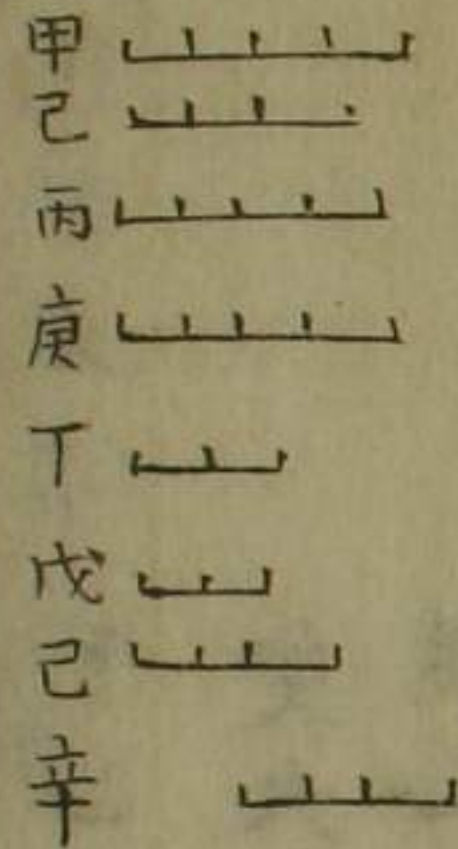 甲
己
丙
庚
丁
戊
己
辛